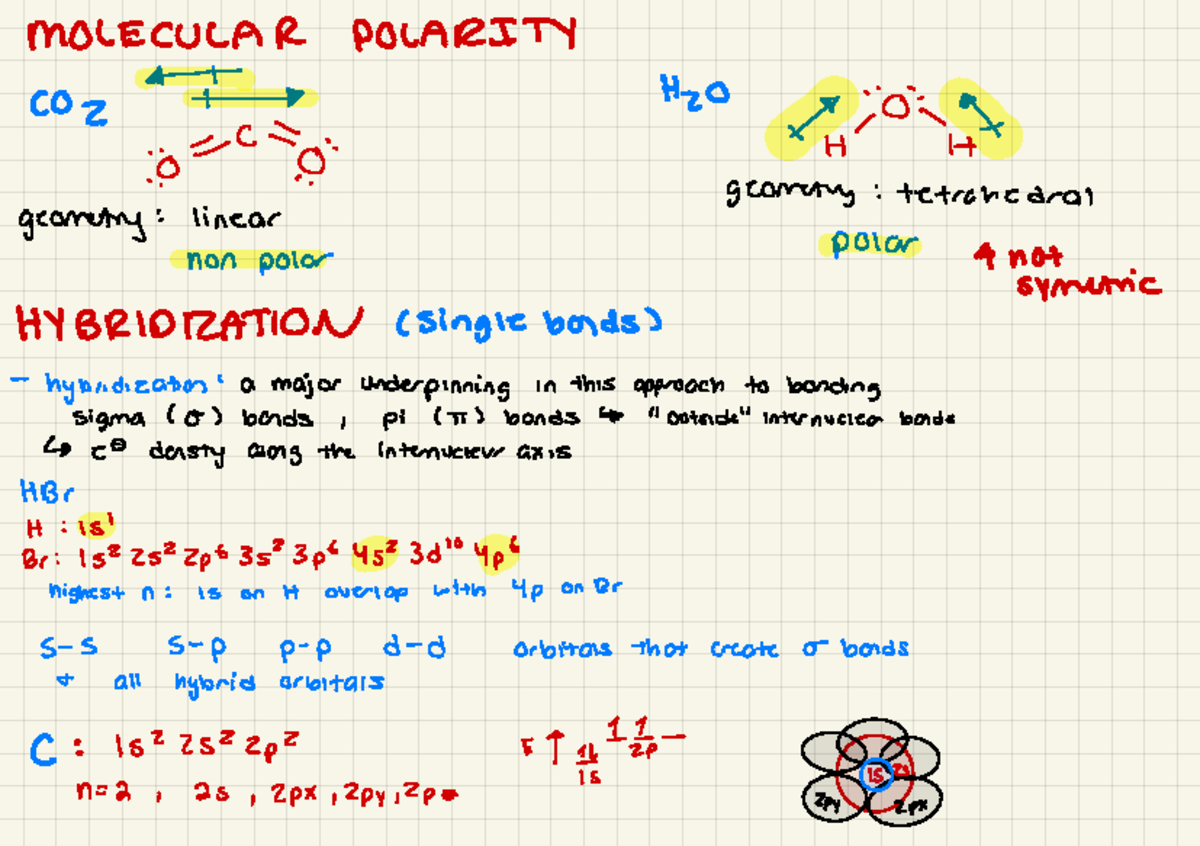 MOLECULAR POLARITY
CO2
O = C = O
geometry: linear
non polar
H2O
O
H H
geometry: tetrahedral
polar
↑ not
symetric
HYBRIDIZATION (single bonds)
- hybridization: a major underpinning in this approach to bonding
sigma (σ) bonds, pi (π) bonds ↳ "outside" internuclear bonds
↳ e⊖ density along the internuclear axis
HBr
H: 1s¹
Br: 1s² 2s² 2p⁶ 3s² 3p⁶ 4s² 3d¹⁰ 4p⁶
highest n: 1s on H overlap with 4p on Br
s-s s-p p-p d-d orbitals that create σ bonds
+ all hybrid orbitals
C: 1s² 2s² 2p²
n=2, 2s, 2px, 2py, 2p
E ↑ 1s 2p
1s 2s
2py 2px